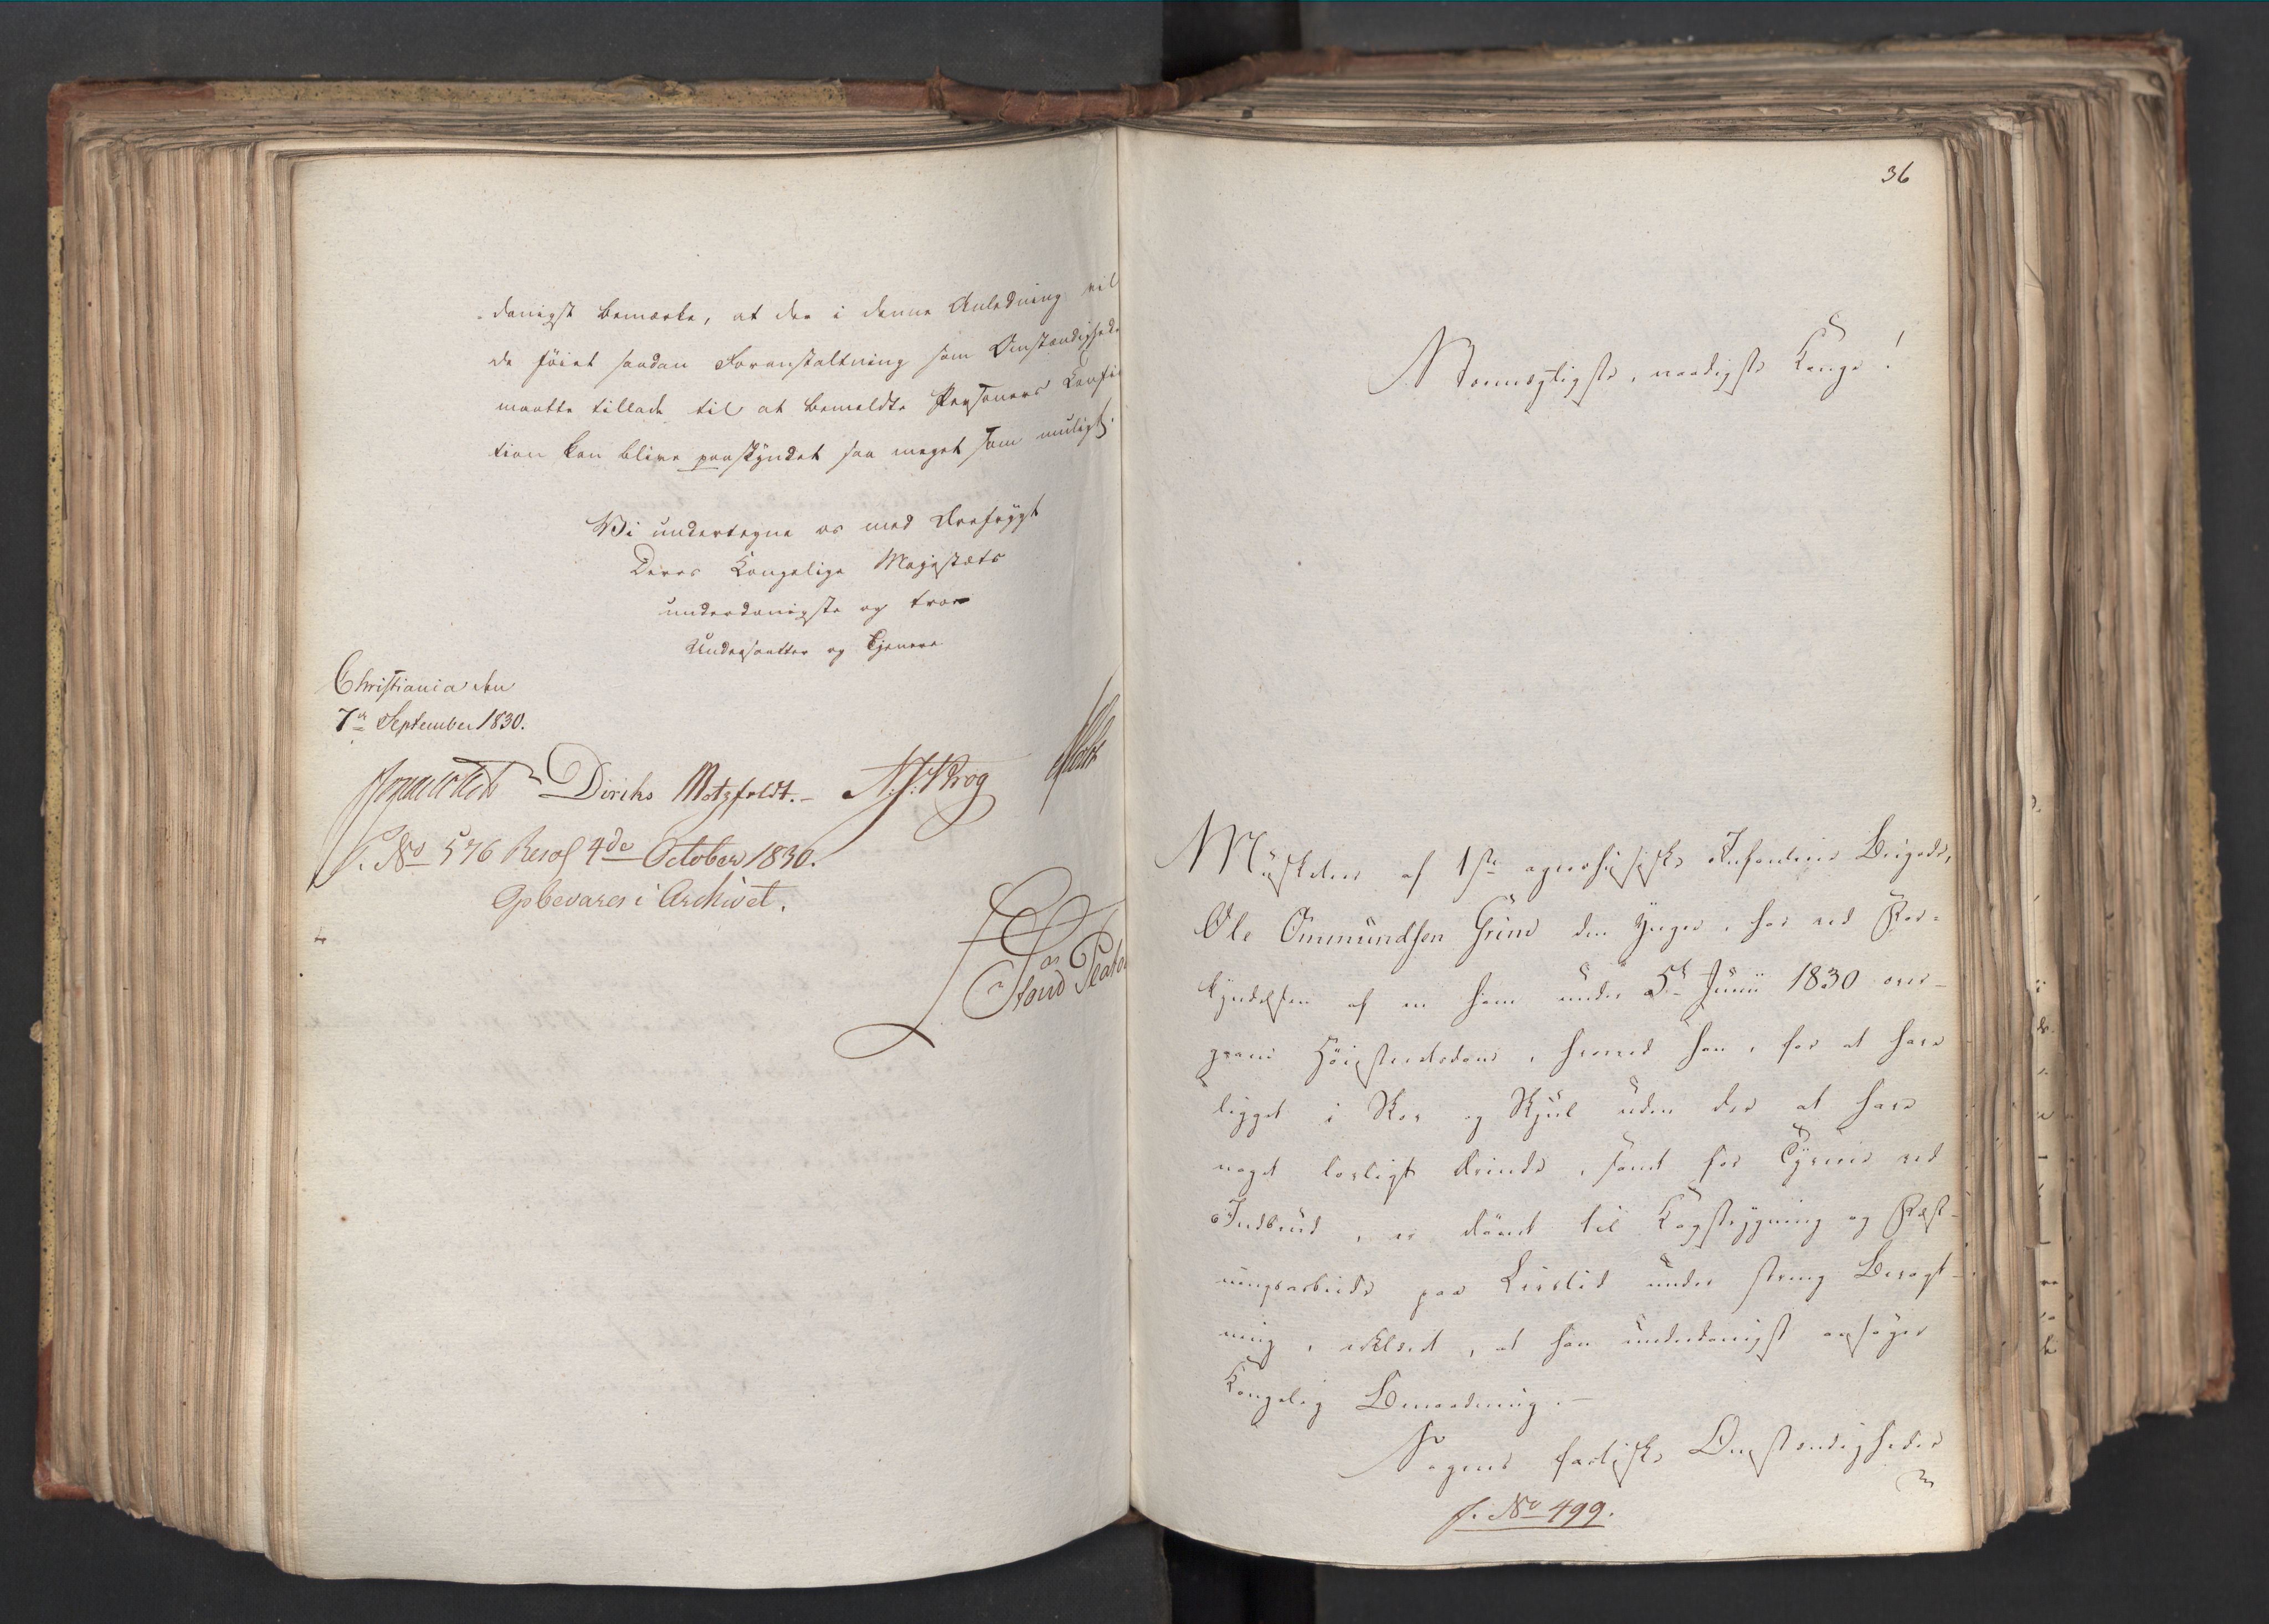 danigst bemærke, at der i denne Anledning vil
de föiet saadan Foranstaltning som Omstændighede
maatte tillade til at bemeldte Personers Confir
tion kan blive paaskyndet saa meget som muligt.
Vi undertegne os med Ærefrygt
Deres Kongelige Majestæts
underdanigste og troe
Undersaatter og Tjenere
Christiania den
7de September 1830.
Diriks Motzfeldt.- N. J. Krog
J. No 576 Resol 4de October 1830.
Opbevares i Archivet.
36
Stormægtigste, naadigste Konge!
Musketeer af 1ste agershusiske Infanterie Brigade,
Ole Ommundsen Grime den yngre, har ved For=
kyndelsen af en ham under 5te Junii 1830 over-
gaaet Höiesteretsdom, hvorved han, for at have
ligget i Skov og Skjul uden der at have
noget lovligt Ærinde, samt for Tyverie ved
Indbrud, er dömt til Kagstrygning og Fæst-
ningsarbeide paa Livstid under streng Bevogt-
ning, erklæret, at han underdanigst ansöger
Kongelig Benaadning.-
Sagens factiske Omstændigheder
J. No 499.